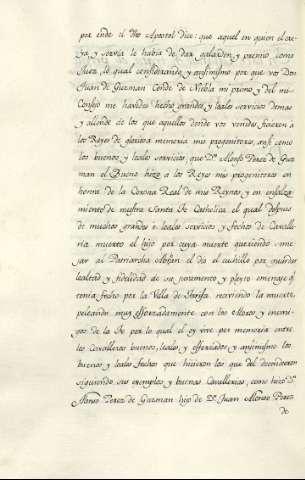 por ende el Sto Apostol dice: que aquel en quien el cre-
ya, y servia le habia de dar galardon y premio, como
Juez, lo qual considerando, y ansimismo por que vos Don
Juan de Guzman Conde de Niebla mi primo y del mi
Consejo me havedes hecho grandes, y leales servicios demas
y aliende de los que aquellos donde vos venides ficieron a
los Reyes de gloriosa memoria mis progenitores, ansi como
los buenos, y leales servicios que Dn. Alonso Perez de Guz-
man el Bueno hizo a los Reyes mis progenitores en
honra de la Corona Real de mis Reynos, y en ensalza-
miento de nuestra Santa Fe Catholica, el qual despues
de muchos grandes e leales servicios, y fechos de Cavalle-
ria muerto el hijo por cuya muerte queriendo
jar al Patriarcha Abrahan el dio el cuchillo por guardar
lealtad y fidelidad de su juramento y pleyto omenage q.
tenia fecho por la Villa de Tarifa recivindo la muerte,
peleando muy esforzadamente con los Moros, y enemi-
gos de la Fe por lo qual el oy vive por memoria entre
los Cavalleros buenos, leales, y esforzados, y ansimismo los
buenos y leales fechos que hicieron los que del decendieron
siguiendo sus exemplos, y buenas Cavallerias, como hizo Dn.
Alonso Perez de Guzman hijo de Dn. Juan Alonso Perez
de